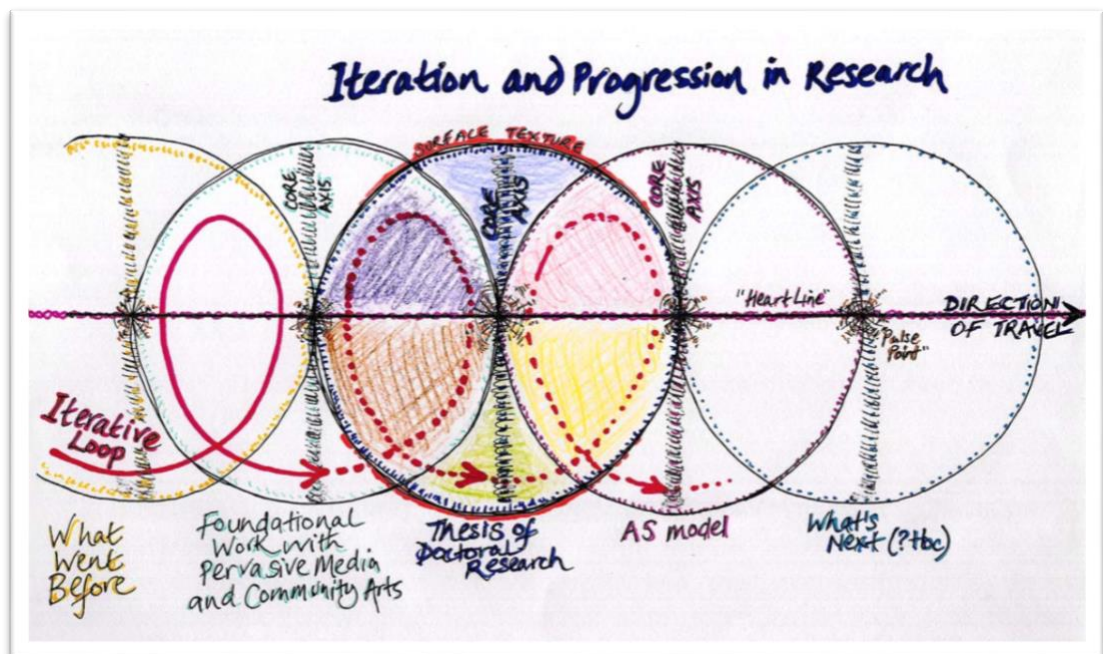 Iteration and Progression in Research
SURFACE TEXTURE
CORE
AXIS
CORE
AXIS
CORE
AXIS
"HeartLine"
DIRECTION
OF TRAVEL
"Pulse
Point"
Iterative
Loop
What
Went
Before
Foundational
Work with
Pervasive Media
and Community Arts
Thesis of
Doctoral
Research
AS model
What's
Next (?tbc)